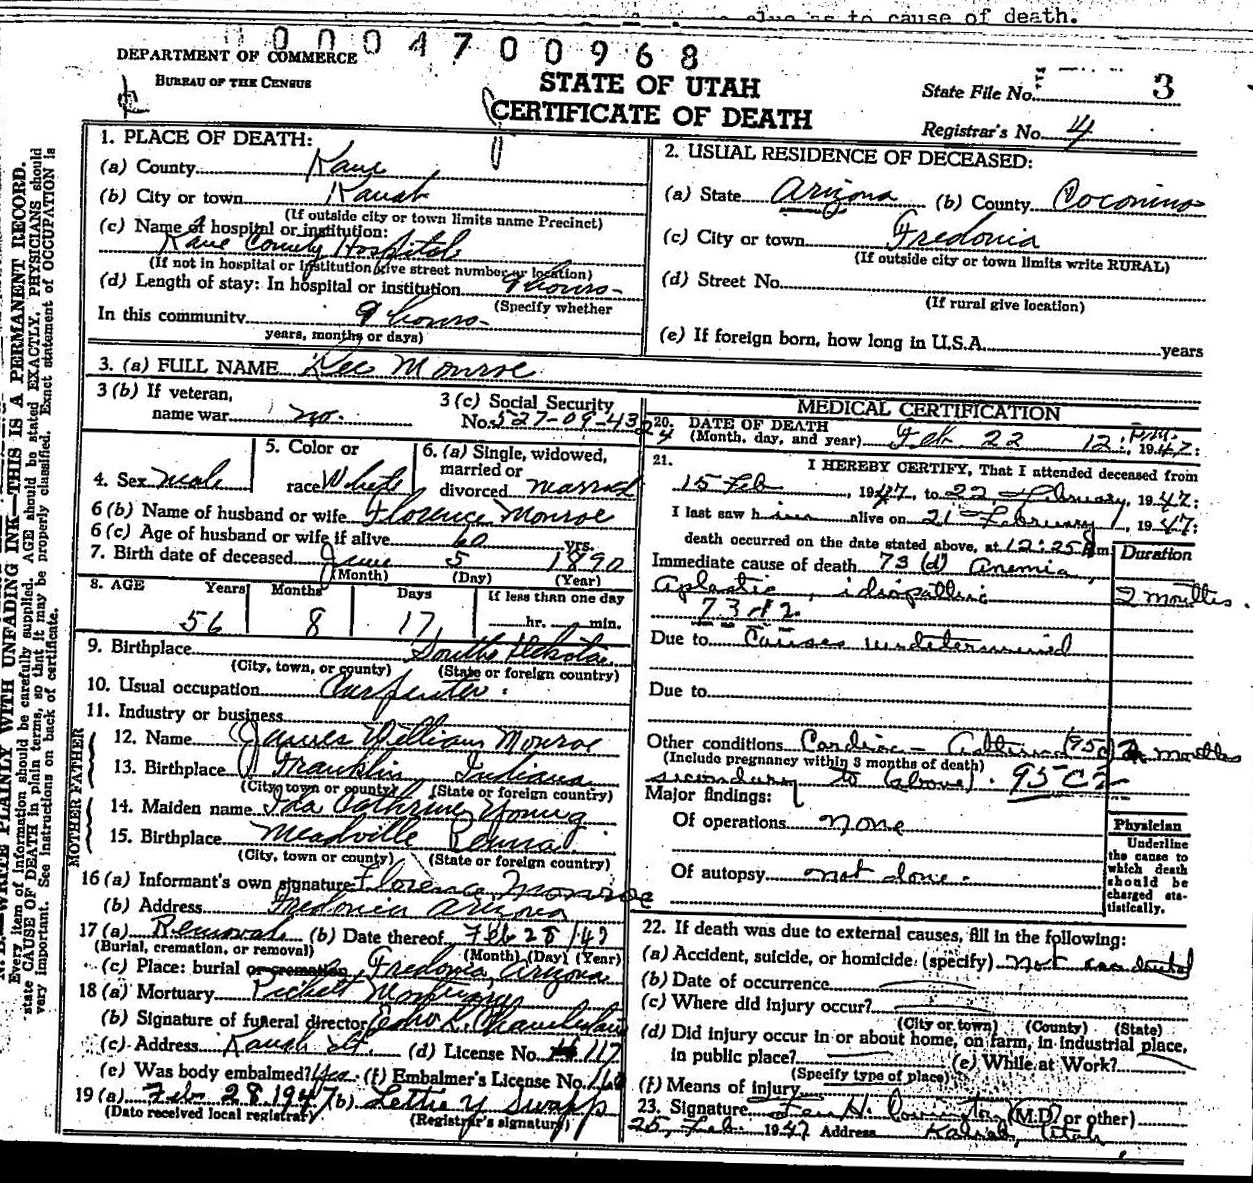 to cause of death.
0004700968
DEPARTMENT OF COMMERCE
BUREAU OF THE CENSUS
STATE OF UTAH
CERTIFICATE OF DEATH
State File No. 3
Registrar's No. 4
N. B.—WRITE PLAINLY WITH UNFADING INK—THIS IS A PERMANENT RECORD.
Every item of information should be carefully supplied. AGE should be stated EXACTLY. PHYSICIANS should
state CAUSE OF DEATH in plain terms, so that it may be properly classified. Exact statement of OCCUPATION is
very important. See instructions on back of certificate.
1. PLACE OF DEATH:
(a) County Kane
(b) City or town Kanab
(If outside city or town limits name Precinct)
(c) Name of hospital or institution:
Kane County Hospital
(If not in hospital or institution give street number or location)
(d) Length of stay: In hospital or institution 9 hours
(Specify whether
In this community 9 hours
years, months or days)
2. USUAL RESIDENCE OF DECEASED:
(a) State Arizona (b) County Coconino
(c) City or town Fredonia
(If outside city or town limits write RURAL)
(d) Street No.
(If rural give location)
(e) If foreign born, how long in U.S.A. years
3. (a) FULL NAME Monroe
3 (b) If veteran,
name war no.
3 (c) Social Security
No. 527-09-4324
4. Sex male
5. Color or
race White
6. (a) Single, widowed,
married or
divorced married
6 (b) Name of husband or wife Florence Monroe
6 (c) Age of husband or wife if alive 60 yrs.
7. Birth date of deceased June 5 1890
(Month) (Day) (Year)
8. AGE Years Months Days If less than one day
56 8 17 hr. min.
9. Birthplace South Dakota
(City, town, or county) (State or foreign country)
10. Usual occupation Carpenter
11. Industry or business
FATHER
12. Name James William Monroe
13. Birthplace Franklin Indiana
(City town or county) (State or foreign country)
MOTHER
14. Maiden name Ida Cathrine Young
15. Birthplace Meadville Penna
(City, town or county) (State or foreign country)
16 (a) Informant's own signature Florence Monroe
(b) Address Fredonia Arizona
17 (a) Removal (b) Date thereof Feb 28 1947
(Burial, cremation, or removal) (Month) (Day) (Year)
(c) Place: burial or cremation Fredonia, Arizona
18 (a) Mortuary
(b) Signature of funeral director Chamberlain
(c) Address Kanab Ut. (d) License No. 117
(e) Was body embalmed? Yes (f) Embalmer's License No.
19 (a) Feb 28 1947 (b) Lettie Y Swapp
(Date received local registrar) (Registrar's signature)
MEDICAL CERTIFICATION
20. DATE OF DEATH
(Month, day, and year) Feb 22 12: 1947:
21. I HEREBY CERTIFY, That I attended deceased from
15 Feb, 1947, to 22 February, 1947:
I last saw him alive on 21 February, 1947:
death occurred on the date stated above, at 12:25 m
Duration
Immediate cause of death 73 (d) Anemia,
aplastic, idiopathic 2 months.
73d2
Due to Causes undetermined
Due to
Other conditions Cardiac - Asthma (95c) months
(Include pregnancy within 3 months of death)
secondary to (above). 95C2
Major findings:
Of operations none
Of autopsy not done.
Physician
Underline
the cause to
which death
should be
charged sta-
tistically.
22. If death was due to external causes, fill in the following:
(a) Accident, suicide, or homicide (specify) not accidental
(b) Date of occurrence
(c) Where did injury occur?
(City or town) (County) (State)
(d) Did injury occur in or about home, on farm, in industrial place,
in public place? (e) While at Work?
(Specify type of place)
(f) Means of injury
23. Signature (M.D. or other)
25, Feb. 1947 Address Kanab, Utah